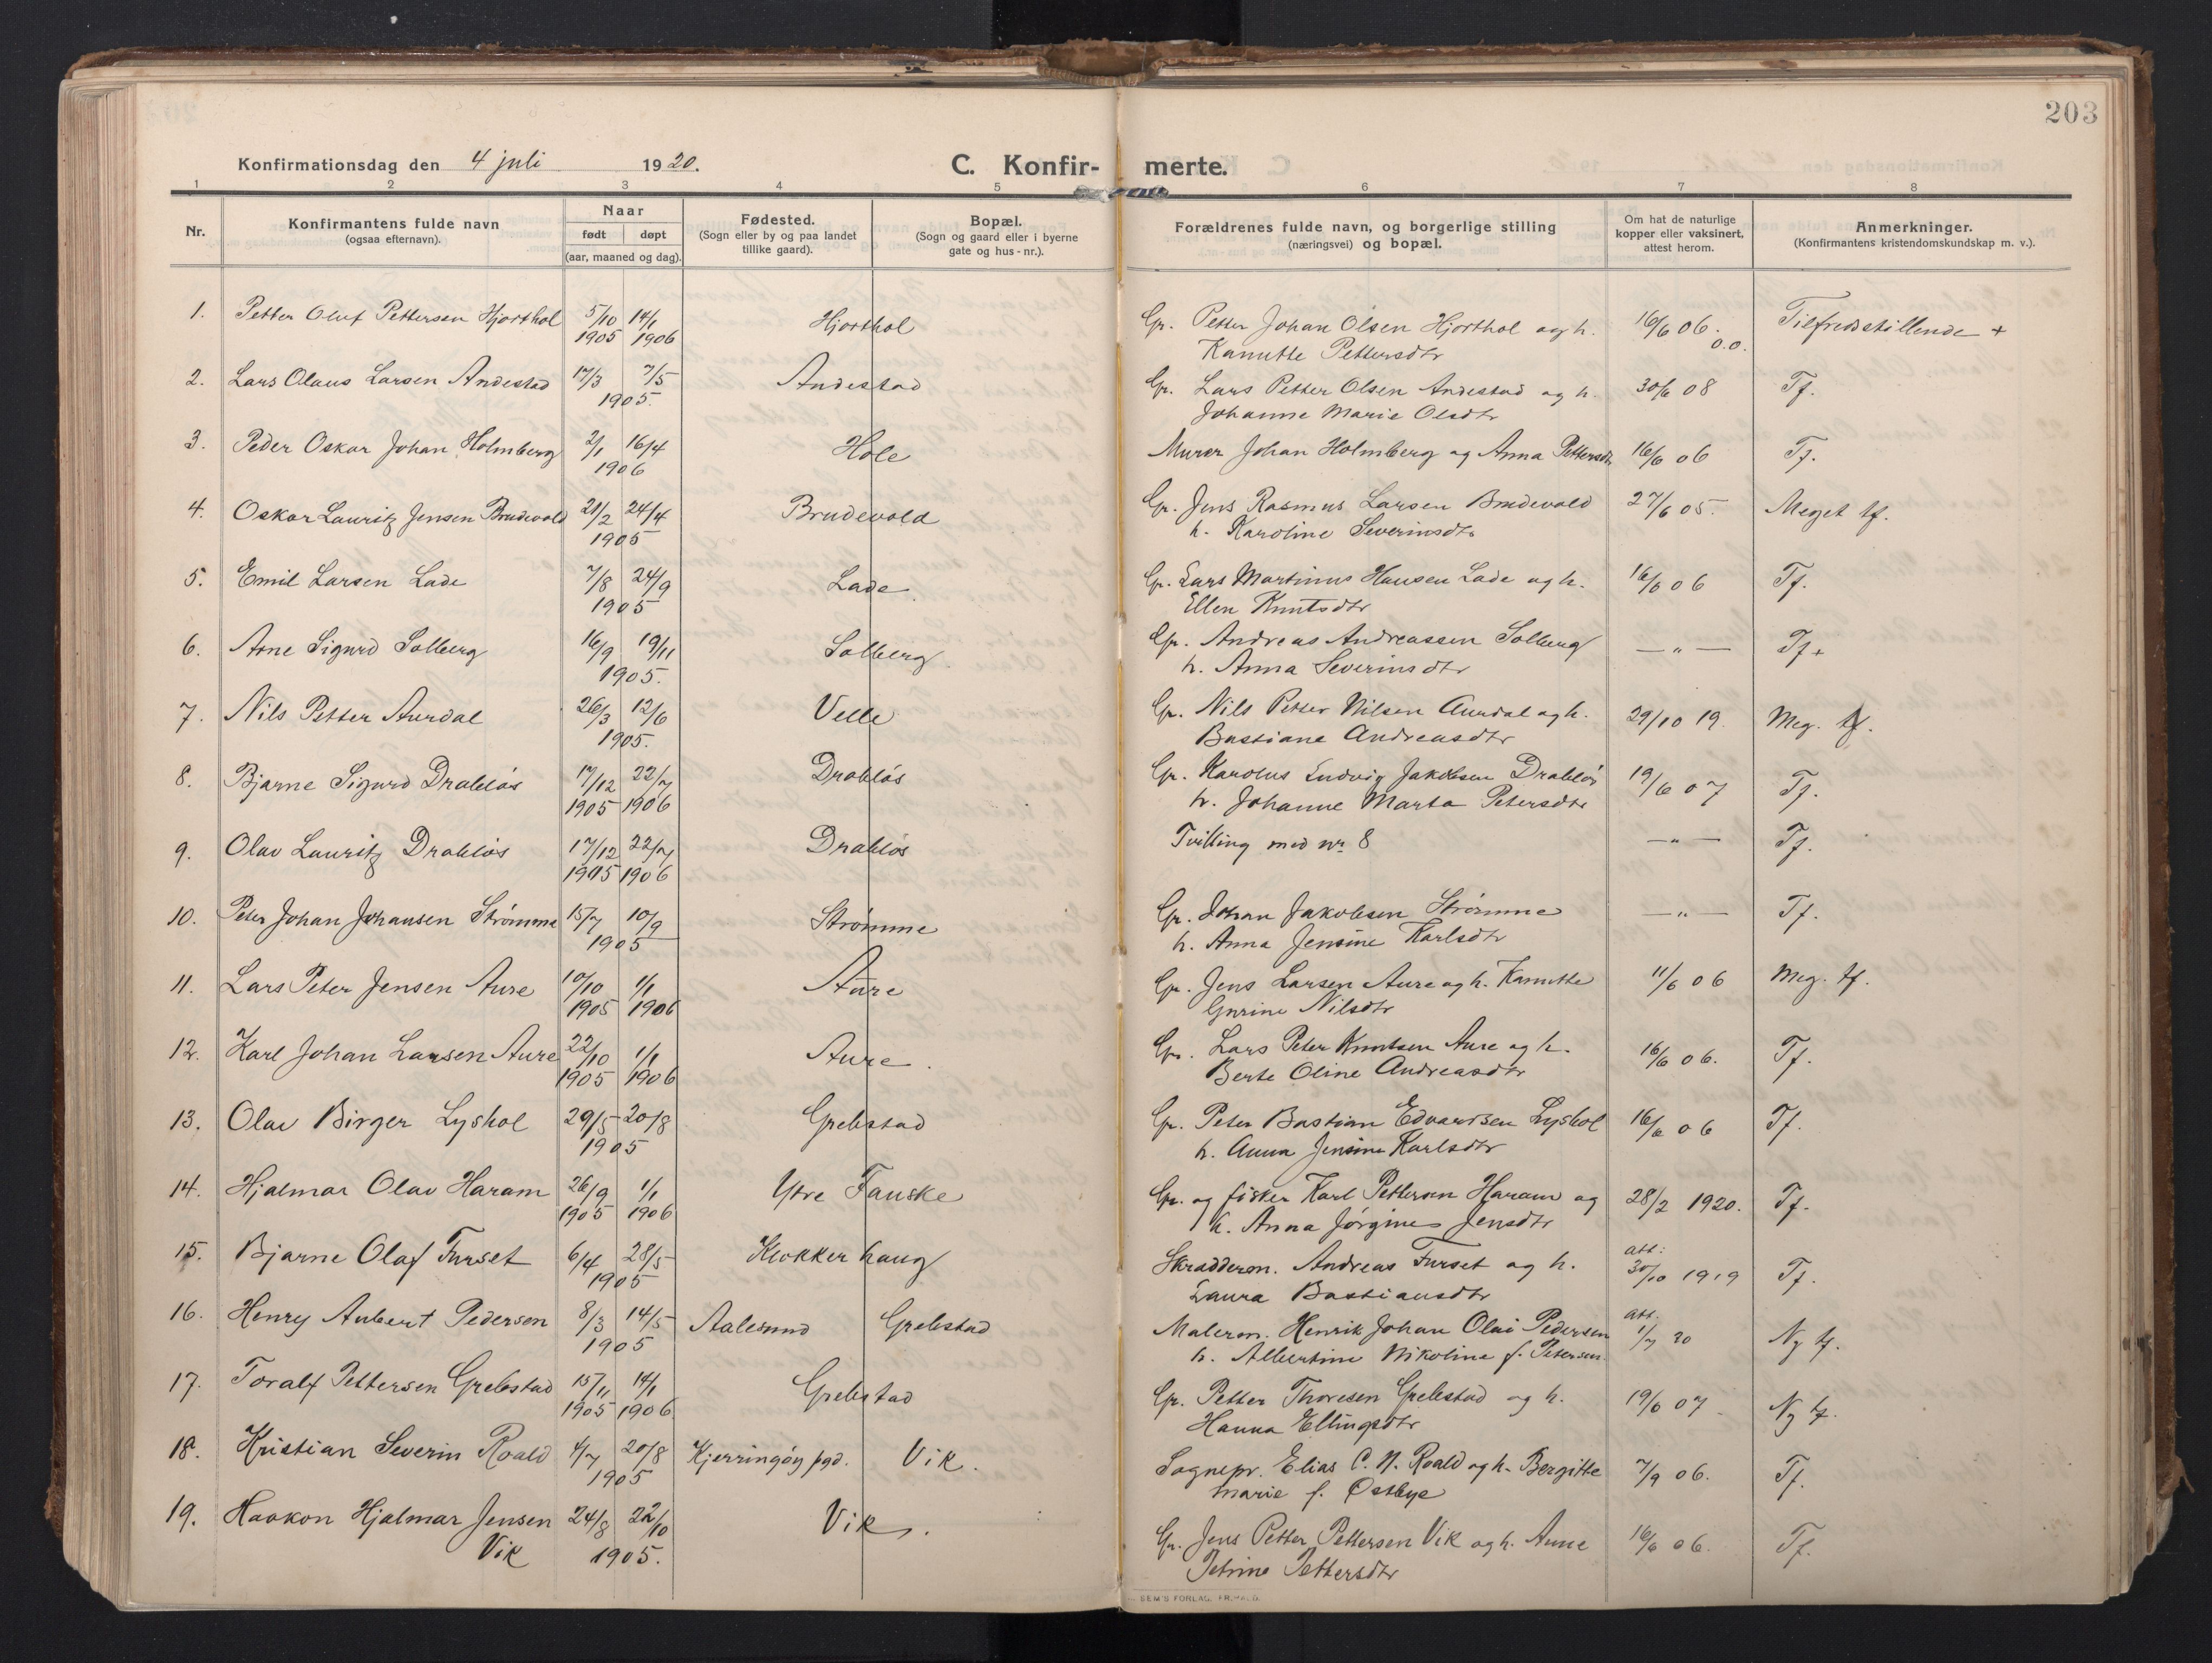 203
Konfirmationsdag den 4 juli 1920. C. Konfir- merte.
1 2 3 4 5 6 7 8
Nr. Konfirmantens fulde navn (ogsaa efternavn). Naar født døpt (aar, maaned og dag). Fødested. (Sogn eller by og paa landet tillike gaard). Bopæl. (Sogn og gaard eller i byerne gate og hus-nr.). Forældrenes fulde navn, og borgerlige stilling (næringsvei) og bopæl. Om hat de naturlige kopper eller vaksinert, attest herom. Anmerkninger. (Konfirmantens kristendomskundskap m. v.).
1. Petter Oluf Pettersen Hjorthol 5/10 14/1 Hjorthol Gr. Petter Johan Olsen Hjorthol og h. 16/6 06. Tilfredsstillende +
1905 1906 Kanutte Pettersdtr o.o.
2. Lars Olaus Larsen Andestad 17/3 7/5 Andestad Gr. Lars Petter Olsen Andestad og h. 30/6 08 Tf.
1905. Johanne Marie Olsdtr
3. Peder Oskar Johan Holmberg 2/1 16/4 Hole Murer Johan Holmberg og Anna Pettersdtr 16/6 06 Tf.
1906
4. Oskar Lauritz Jensen Brudevold 21/2 24/4 Brudevold Gr. Jens Rasmus Larsen Brudevold 27/6 05. Meget tf.
1905 h. Karoline Severinsdtr
5. Emil Larsen Lade 7/8 24/9 Lade Gr. Lars Martinus Hansen Lade og h. 16/6 06 Tf.
1905 Ellen Knutsdtr
6. Arne Sigurd Solberg 16/9 19/11 Solberg. Gr. Andreas Andreassen Solberg — " — Tf+
1905. h. Anna Severinsdtr
7. Nils Petter Aurdal 26/3 12/6 Velle Gr. Nils Petter Nilsen Aurdal og h. 29/10 19. Meg. tf.
1905. Bastiane Andreasdtr
8. Bjarne Sigurd Drabløs 17/12 22/7 Drabløs Gr. Karolus Ludvig Jakobsen Drabløs 19/6 07 Tf.
1905 1906 h. Johanne Marta Petersdtr
9. Olav Lauritz Drabløs 17/12 22/7 Drabløs Tvilling med nr 8 — " — Tf.
1905 1906
10. Peter Johan Johansen Strømme 15/7 10/9 Strømme Gr. Johan Jakobsen Strømme — " — Tf.
1905 h. Anna Jensine Karlsdtr
11. Lars Peter Jensen Aure 10/10 1/1 Aure Gr. Jens Larsen Aure og h. Kanutte 11/6 06 Meg. tf.
1905 1906 Gurine Nilsdtr
12. Karl Johan Larsen Aure 22/10 1/1 Aure. Gr. Lars Peter Knutsen Aure og h. 16/6 06. Tf.
1905 1906 Berte Oline Andreasdtr
13. Olav Birger Lyshol 29/5 20/8 Grebstad Gr. Peter Bastian Edvardsen Lyshol 16/6 06 Tf.
1905 h. Anna Jensine Karlsdtr
14. Hjalmar Olav Haram 26/9 1/1 Ytre Fauske Gr. og fisker Karl Pettersen Haram og 28/2 1920. Tf.
1905 1906 h. Anna Jørgine Jensdtr
15. Bjarne Olaf Furset 6/4 28/5 Klokkerhaug Skradderm. Andreas Furset og h. att: 30/10 1919 Tf.
1905 Laura Bastiansdtr
16. Henry Aubert Pedersen 8/3 14/5 Aalesund Grebstad Malerm. Henrik Johan Olai Pedersen att. 1/7 20 Ng tf.
1905 h. Albertine Nikoline f. Petersen.
17. Toralf Pettersen Grebstad 15/11 14/1 Grebstad Gr. Petter Thoresen Grebstad og h. 19/6 07 Ng tf.
1905 1906 Hanna Ellingsdtr
18. Kristian Severin Roald 4/7 20/8 Kjerringøy pgd. Vik. Sognepr. Elias C. N. Roald og h. Bergitte 7/9 06. Tf.
1905 Marie f. Østbye
19. Haakon Hjalmar Jensen 24/8 22/10 Vik. Gr. Jens Petter Pettersen Vik og h. Anne 16/6 06. Tf.
Vik 1905. Petrine Pettersdtr
SEM'S FORLAG, FR.HALD.